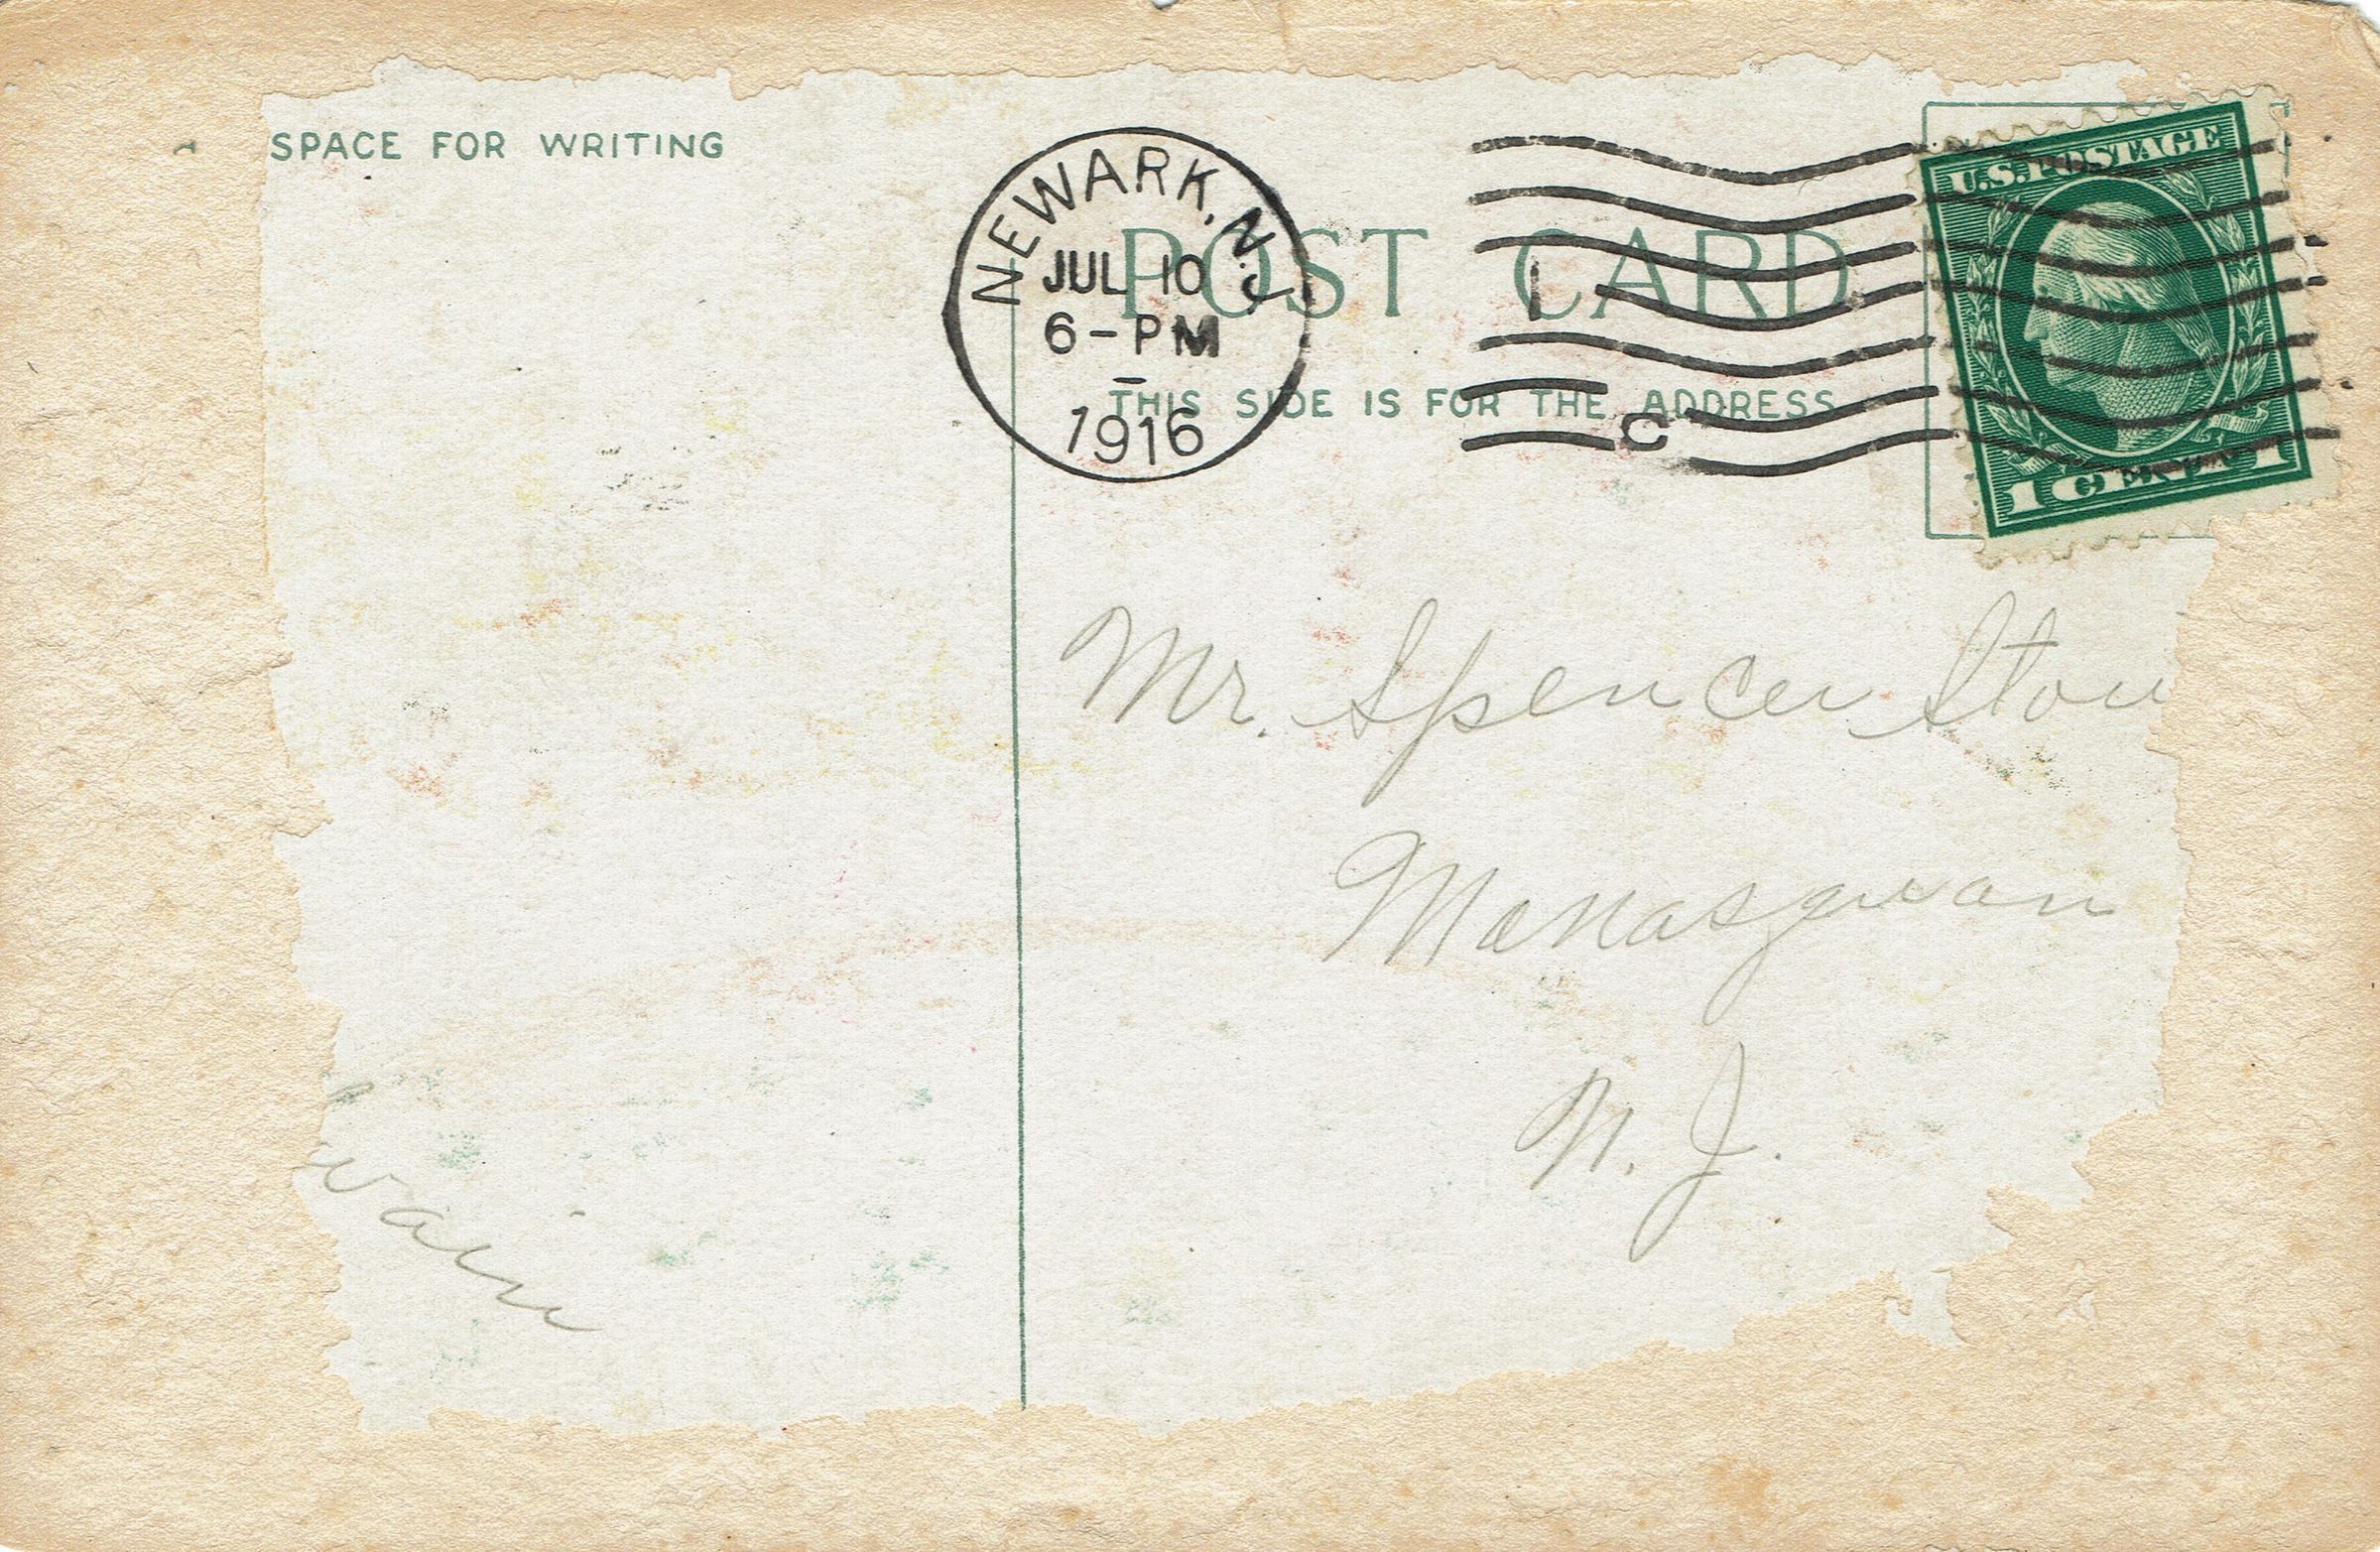 SPACE FOR WRITING
NEWARK, N.J.
JUL 10
6-PM
1916
POST CARD
THIS SIDE IS FOR THE ADDRESS
1
C
U.S. POSTAGE
1 CENT 1
Mr. Spencer
Manasquan
N. J.